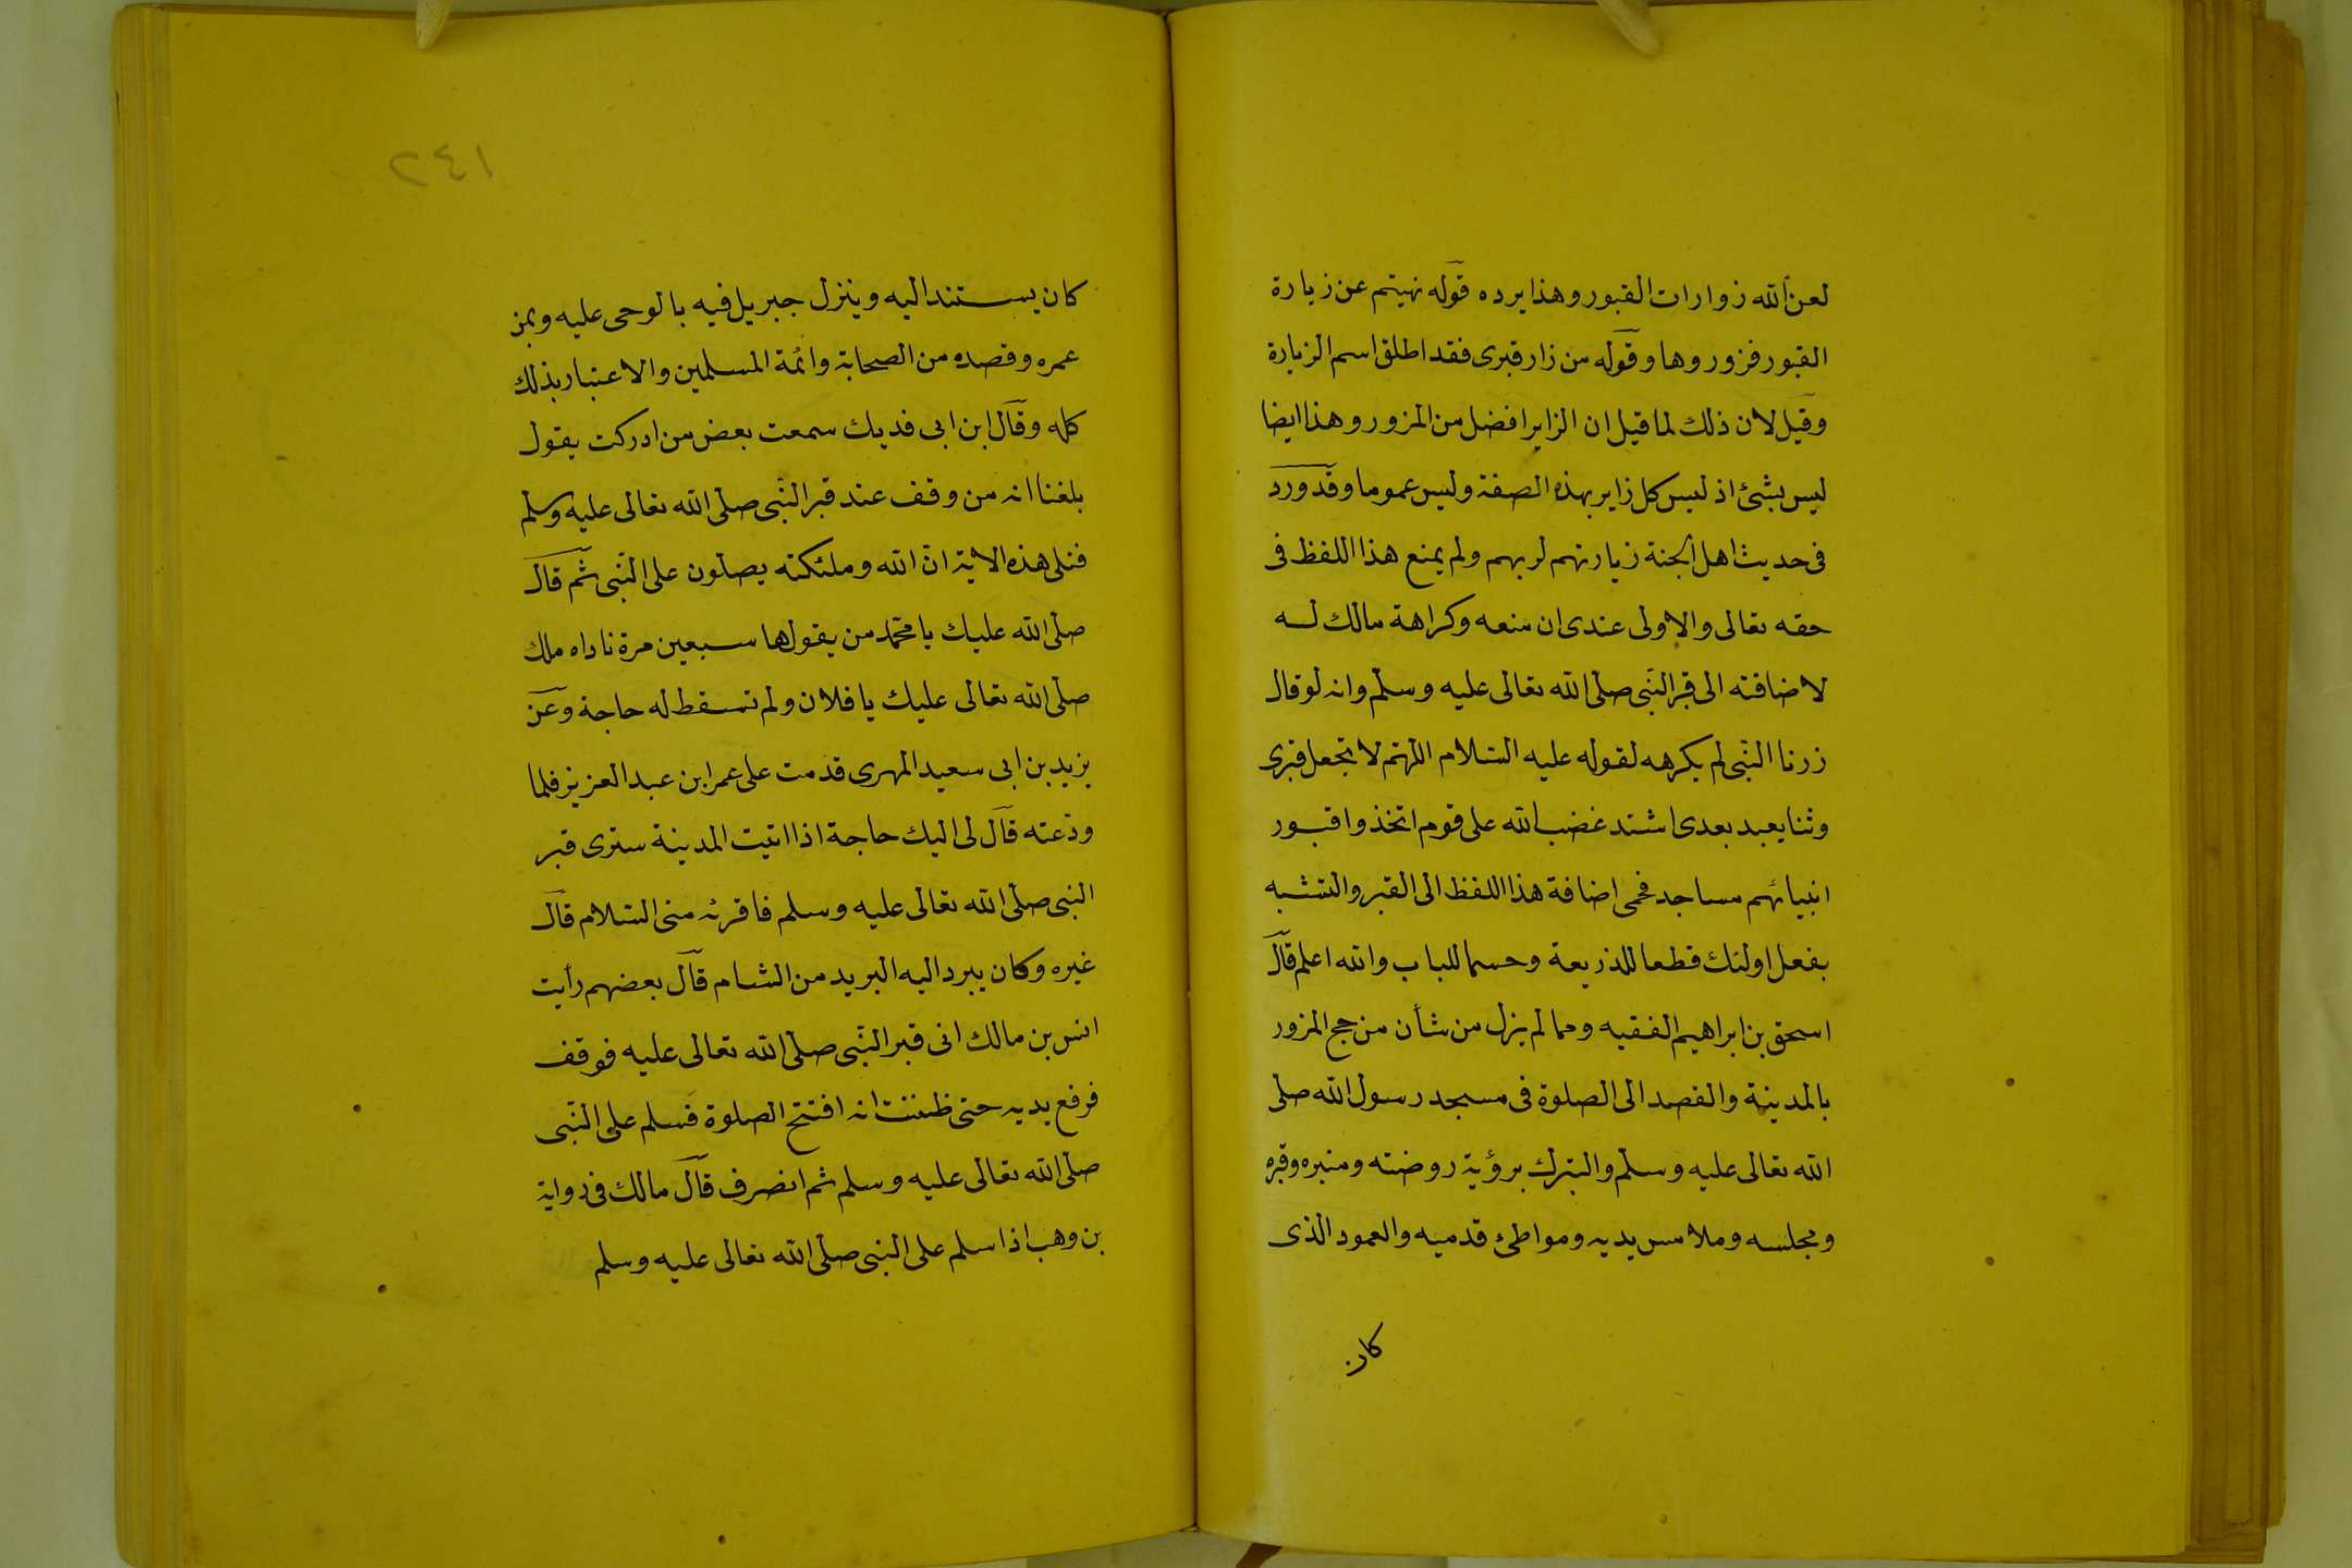 لعن الله زوارات القبور وهذا يرده قوله نهيتم عن زيارة
القبور فزوروها وقوله من زار قبرى فقد اطلق اسم الزيارة
وقيل لان ذلك لما قيل ان الزاير افضل من المزور وهذا ايضا
ليس بشئ اذ ليس كل زاير بهذه الصفة وليس عموما وقد ورد
فى حديث اهل الجنة زيارتهم لربهم ولم يمنع هذا اللفظ فى
حقه تعالى والاولى عندى ان منعه وكراهة مالك له
لاضافته الى قبر النبى صلى الله تعالى عليه وسلم وانه لو قال
زرنا النبى لم يكرهه لقوله عليه السلام اللهم لا تجعل قبرى
وثنا يعبد بعدى اشتد غضب الله على قوم اتخذوا قبور
انبيائهم مساجد فحمى اضافة هذا اللفظ الى القبر والتشبه
بفعل اولئك قطعا للذريعة وحسما للباب والله اعلم قال
اسحق بن ابراهيم الفقيه ومما لم يزل من شأن من حج المزور
بالمدينة والقصد الى الصلوة فى مسجد رسول الله صلى
الله تعالى عليه وسلم والتبرك برؤية روضته ومنبره وقبره
ومجلسه وملامس يديه ومواطئ قدميه والعمود الذى
كان
١٤٢
كان يستند اليه وينزل جبريل فيه بالوحى عليه وبمن
عمره وقصده من الصحابة وائمة المسلمين والاعتبار بذلك
كله وقال ابن ابى فديك سمعت بعض من ادركت يقول
بلغنا انه من وقف عند قبر النبى صلى الله تعالى عليه وسلم
فتلى هذه الاية ان الله وملئكته يصلون على النبى ثم قال
صلى الله عليك يا محمد من يقولها سبعين مرة ناداه ملك
صلى الله تعالى عليك يا فلان ولم تسقط له حاجة وعن
يزيد بن ابى سعيد المهرى قدمت على عمر ابن عبد العزيز فلما
ودعته قال لى اليك حاجة اذا اتيت المدينة سترى قبر
النبى صلى الله تعالى عليه وسلم فاقرئه منى السلام قال
غيره وكان يبرد اليه البريد من الشام قال بعضهم رأيت
انس بن مالك اتى قبر النبى صلى الله تعالى عليه فوقف
فرفع يديه حتى ظننت انه افتتح الصلوة فسلم على النبى
صلى الله تعالى عليه وسلم ثم انصرف قال مالك فى رواية
بن وهب اذا سلم على النبى صلى الله تعالى عليه وسلم